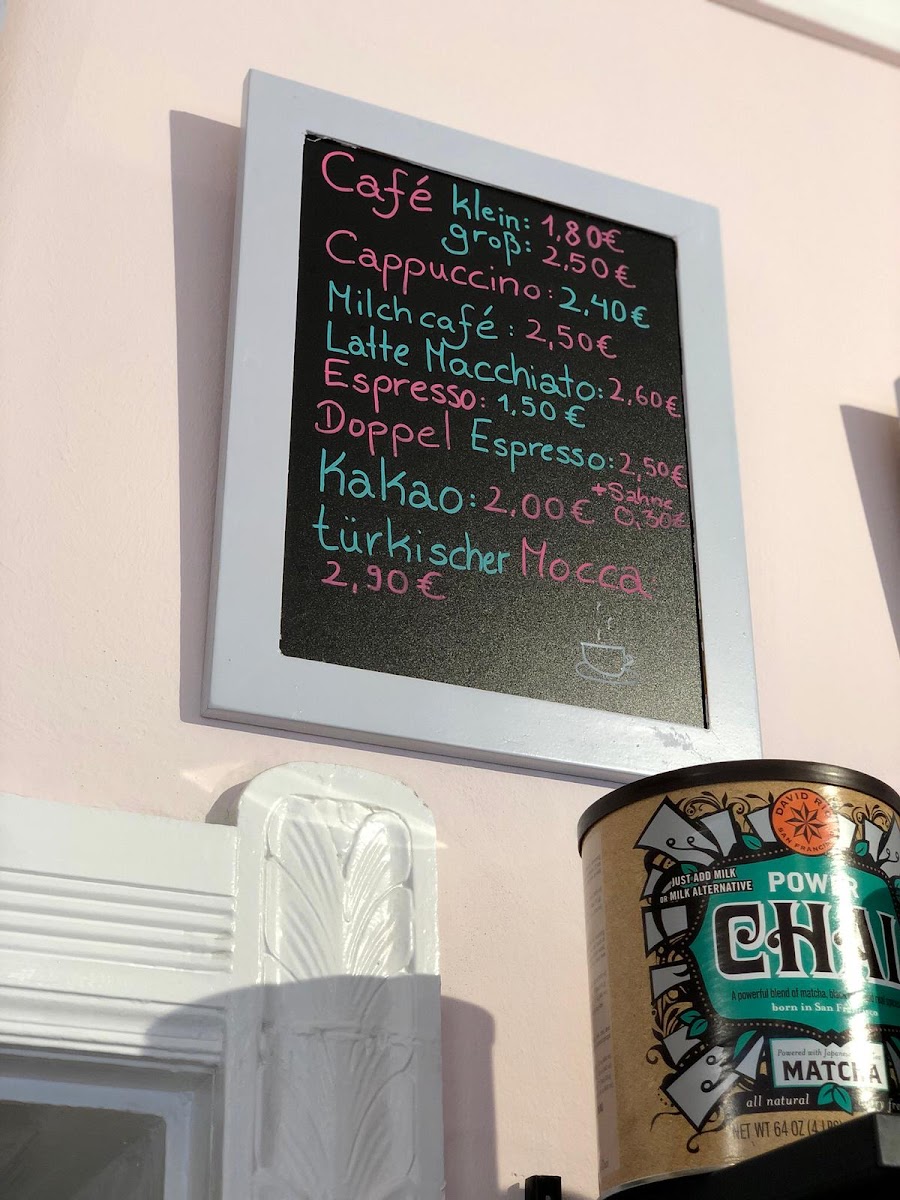 Café klein: 1,80€
groß: 2,50€
Cappuccino: 2,40€
Milchcafé: 2,50€
Latte Macchiato: 2,60€
Espresso: 1,50€
Doppel Espresso: 2,50€
Kakao: 2,00€ +Sahne 0,30€
türkischer Mocca:
2,90€
DAVID RI
SAN FRANCIS
JUST ADD MILK
OR MILK ALTERNATIVE
POWER
CHAI
A powerful blend of matcha, black
born in San Francisco
Powered with Japanese
MATCHA
all natural
NET WT 64 OZ (4 LBS)